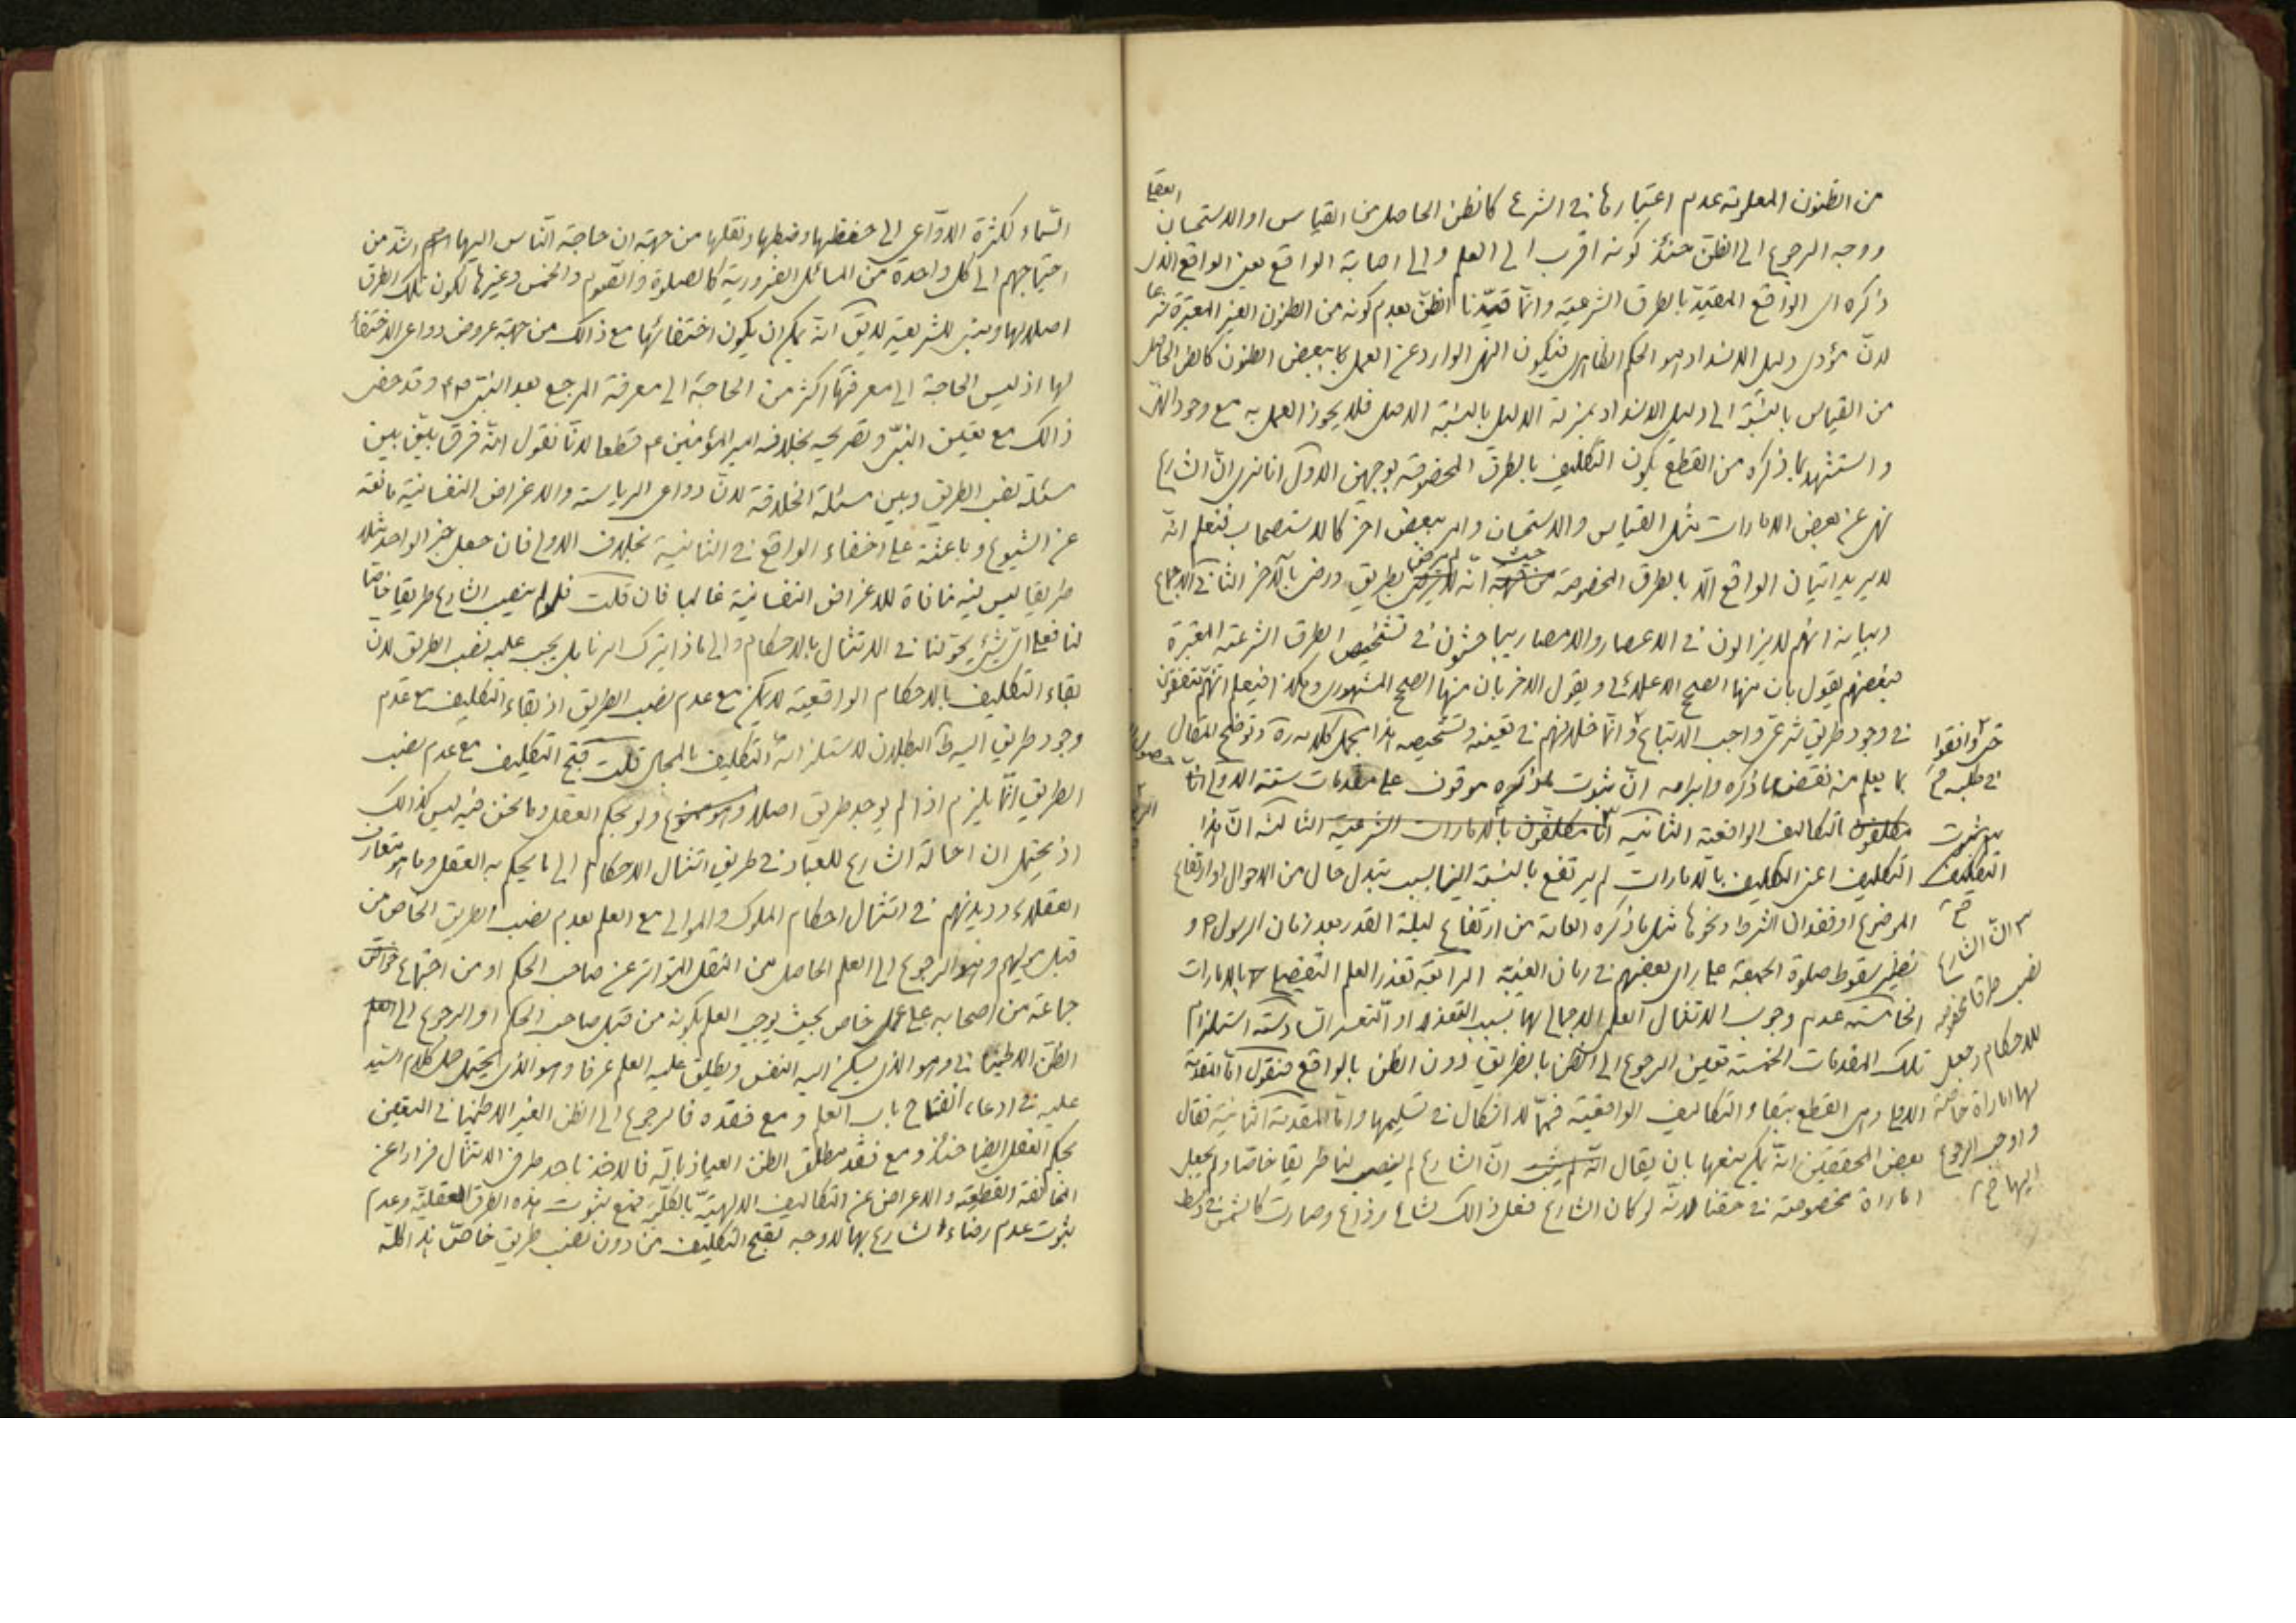 من الظنون المعلومة عدم اعتبارها في الشرع كالظن الحاصل من القياس او الاستحسان العقلي
ووجه الرجوع الى الظن حينئذ كونه اقرب الى العلم والى اصابة الواقع يعني الواقع الذي
ذكره اي الواقع المقيد بالطرق الشرعية وانما قيدنا الظن بعدم كونه من الظنون الغير المعتبرة شرعا
لان مؤدى دليل الانسداد هو الحكم الظاهري فيكون النهي الوارد عن العمل ببعض الظنون كالظن الحاصل
من القياس بالنسبة الى دليل الانسداد بمنزلة الدليل بالنسبة الاصل فلا يجوز العمل به مع وجود
واستشهد لما ذكره من القطع بكون التكليف بالطرق المخصوصة بوجهين الاول انا نرى ان الشارع
نهى عن بعض الامارات مثل القياس والاستحسان وامر ببعض اخر كالاستصحاب فنعلم انه
لا يريد اتيان الواقع الا بالطرق المخصوصة حيث انه لم يرض بطريق ورضى بآلاخر الثاني الاجماع
وبيانه انهم لا يزالون في الاعصار والامصار يباحثون في تشخيص الطرق الشرعية المعتبرة
فبعضهم يقول بان منها الصحيح الاعلائي ويقول الاخر بان منها الصحيح المشهوري وهكذا فيعلم انهم متفقون
في وجود طريق شرعي واجب الاتباع وانما خلافهم في تعيينه وتشخيصه هذا مجمل كلامه ره وتوضيح المقال
حتى وافقوا
في طلبه خ
بما يعلم منه نقض ما ذكره وابرامه ان ثبوت ما ذكره موقوف على مقدمات ستة الاولى انا
مكلفون بالتكاليف الواقعية الثانية انا مكلفون بالامارات الشرعية الثالثة ان هذا
هو ثبوت
التكليف
خ
التكليف اعني التكليف بالامارات لم يرتفع بالنسبة الينا بسبب تبدل حال من الاحوال او ارتفاع
الموضوع او فقدان الشرط ونحوها مثل ما ذكره العامة من ارتفاع ليلة القدر بعد زمان الرسول ص و
نظير سقوط صلوة الجمعة على راى بعضهم في زمان الغيبة الرابعة تعذر العلم التفصيلي بالامارات
الخامسة عدم وجوب الامتثال العلم الاجمالي لها بسبب التعذر او التعسر السادسة استلزام
تلك المقدمات الخمسة تعين الرجوع الى الظن بالطريق دون الظن بالواقع فنقول اما المقدمة
الاولى وهى القطع ببقاء التكاليف الواقعية فمما لا اشكال في تسليمها واما المقدمة الثانية فقال
بعض المحققين انه يمكن منعها بان يقال ان الشارع لم ينصب لنا طريقا خاصا ولم يجعل
امارة مخصوصة في حقنا لانه لو كان الشارع فعل ذالك لشاع وذاع وصارت كالشمس في وسط
ان الشارع
نصب طرقا مخصوصه
للاحكام وجعل
لها امارة خاصة
واوجب الرجوع
اليها خ
السماء لكثرة الدواعى الى حفظها وضبطها ونقلها من جهة ان حاجة الناس اليها اشد من
احتياجهم الى كل واحدة من المسائل الضرورية كالصلوة والصوم والخمس وغيرها لكون تلك الطرق
اصلا لها ومبنى للشريعة لا يق انه يمكن ان يكون اختفائها مع ذالك من جهة عروض دواعى الاختفاء
لها اذ ليس الحاجة الى معرفتها اكثر من الحاجة الى معرفة المرجع بعد النبي ص وقد خفى
ذالك مع تعيين النبي وتصريحه بخلافه امير المؤمنين ع قطعا لانا نقول انه فرق بين بين
مسئلة نصب الطريق وبين مسئلة الخلافة لان دواعى الرياسة والاغراض النفسانية مانعة
عن الشيوع وباعثة على اخفاء الواقع في الثانية بخلاف الاولى فان جعل خبر الواحد مثلا
طريقا ليس فيه منافاة للاغراض النفسانية غالبا فان قلت فلو لم ينصب الشارع طريقا خاصا
لنا فعلى اى شيئ يحولنا في الامتثال بالاحكام والى ماذا يترك امرنا بل يجب عليه نصب الطريق لان
بقاء التكليف بالاحكام الواقعية لا يمكن مع عدم نصب الطريق اذ بقاء التكليف مع عدم
وجود طريق اليه ظ البطلان لاستلزامه التكليف بالمحال قلت قبح التكليف مع عدم نصب
الطريق انما يلزم اذا لم يوجد طريق اصلا وهو ممنوع ولو بحكم العقل وما نحن فيه ليس كذالك
اذ يحتمل ان احالة الشارع للعباد في طريق امتثال الاحكام الى ما يحكم به العقل وما هو متعارف
العقلاء وديدنهم في امتثال احكام الملوك والموالى مع العلم بعدم نصب الطريق الخاص من
قبل موليهم وهو الرجوع الى العلم الحاصل من النقل المتواتر عن صاحب الحكم او من اجتماع خواص
جماعة من اصحابه على عمل خاص بحيث يوجب العلم بكونه من قبل صاحب الحكم او الرجوع الى
الظن الاطمينانى وهو الذى يسكن اليه النفس ويطلق عليه العلم عرفا وهو الذى يحتمل حمل كلام السيد
عليه في ادعاء انفتاح باب العلم ومع فقده فالرجوع الى الظن الغير الاطمينانى اليقين
بحكم العقل ايضا حينئذ ومع فقد مطلق الظن العياذ بالله فالاخذ باحد طرفى الامتثال فرارا عن
المخالفة القطعية والاعراض عن التكاليف الالهية بالكلية فمع ثبوت هذه الطرق العقلية وعدم
ثبوت عدم رضاء الشارع بها لا وجه لقبح التكليف من دون نصب طريق خاص هذا كله